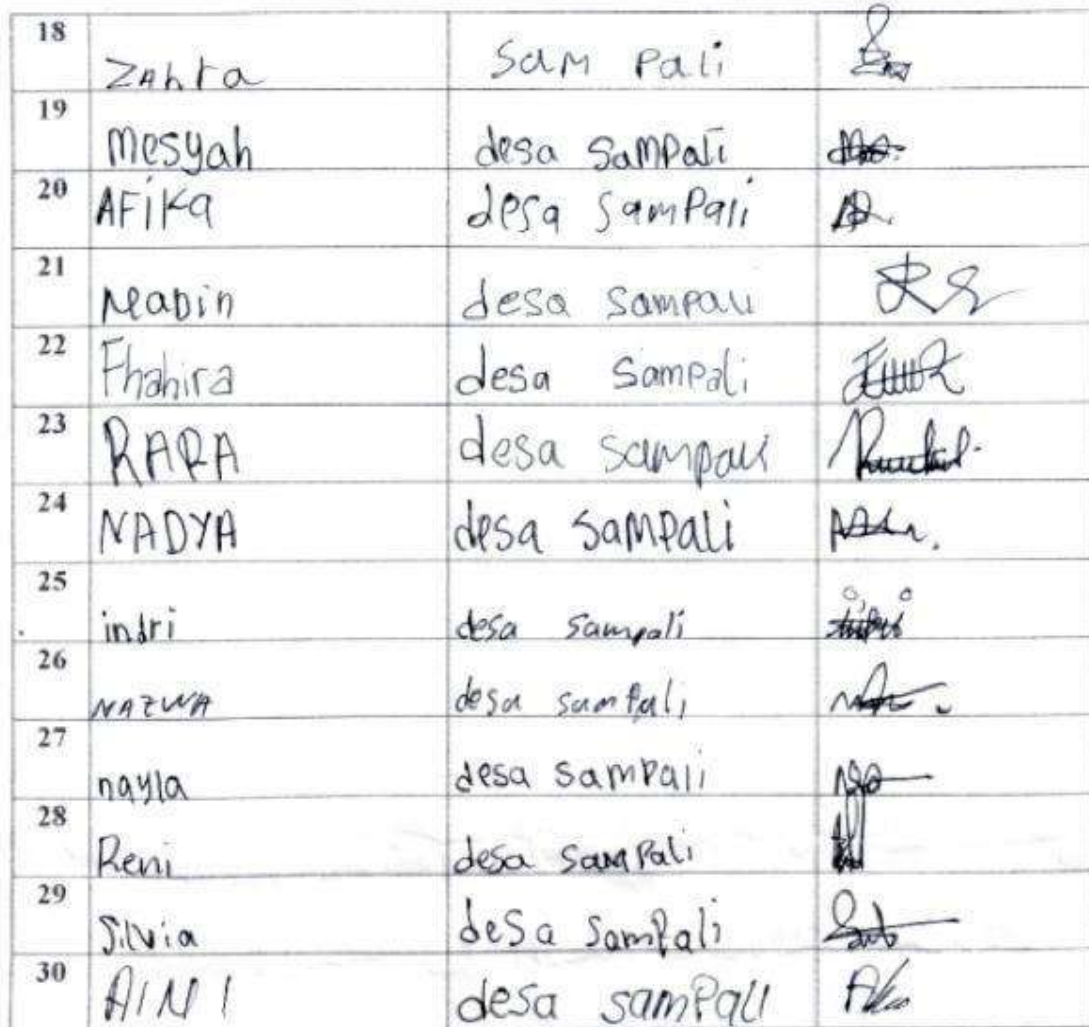 18 ZAhra Sam Pali
19 Mesyah desa SaMPali
20 AFiKa desa SamPali
21 Nadin desa Sampali
22 Fhahira desa Sampali
23 RARA desa Sampali
24 NADYA desa SaMPali
25 indri desa Sampali
26 NAZWA desa samPali
27 nayla desa SamPali
28 Reni desa SamPali
29 Silvia deSa SamPali
30 AINI desa samPali